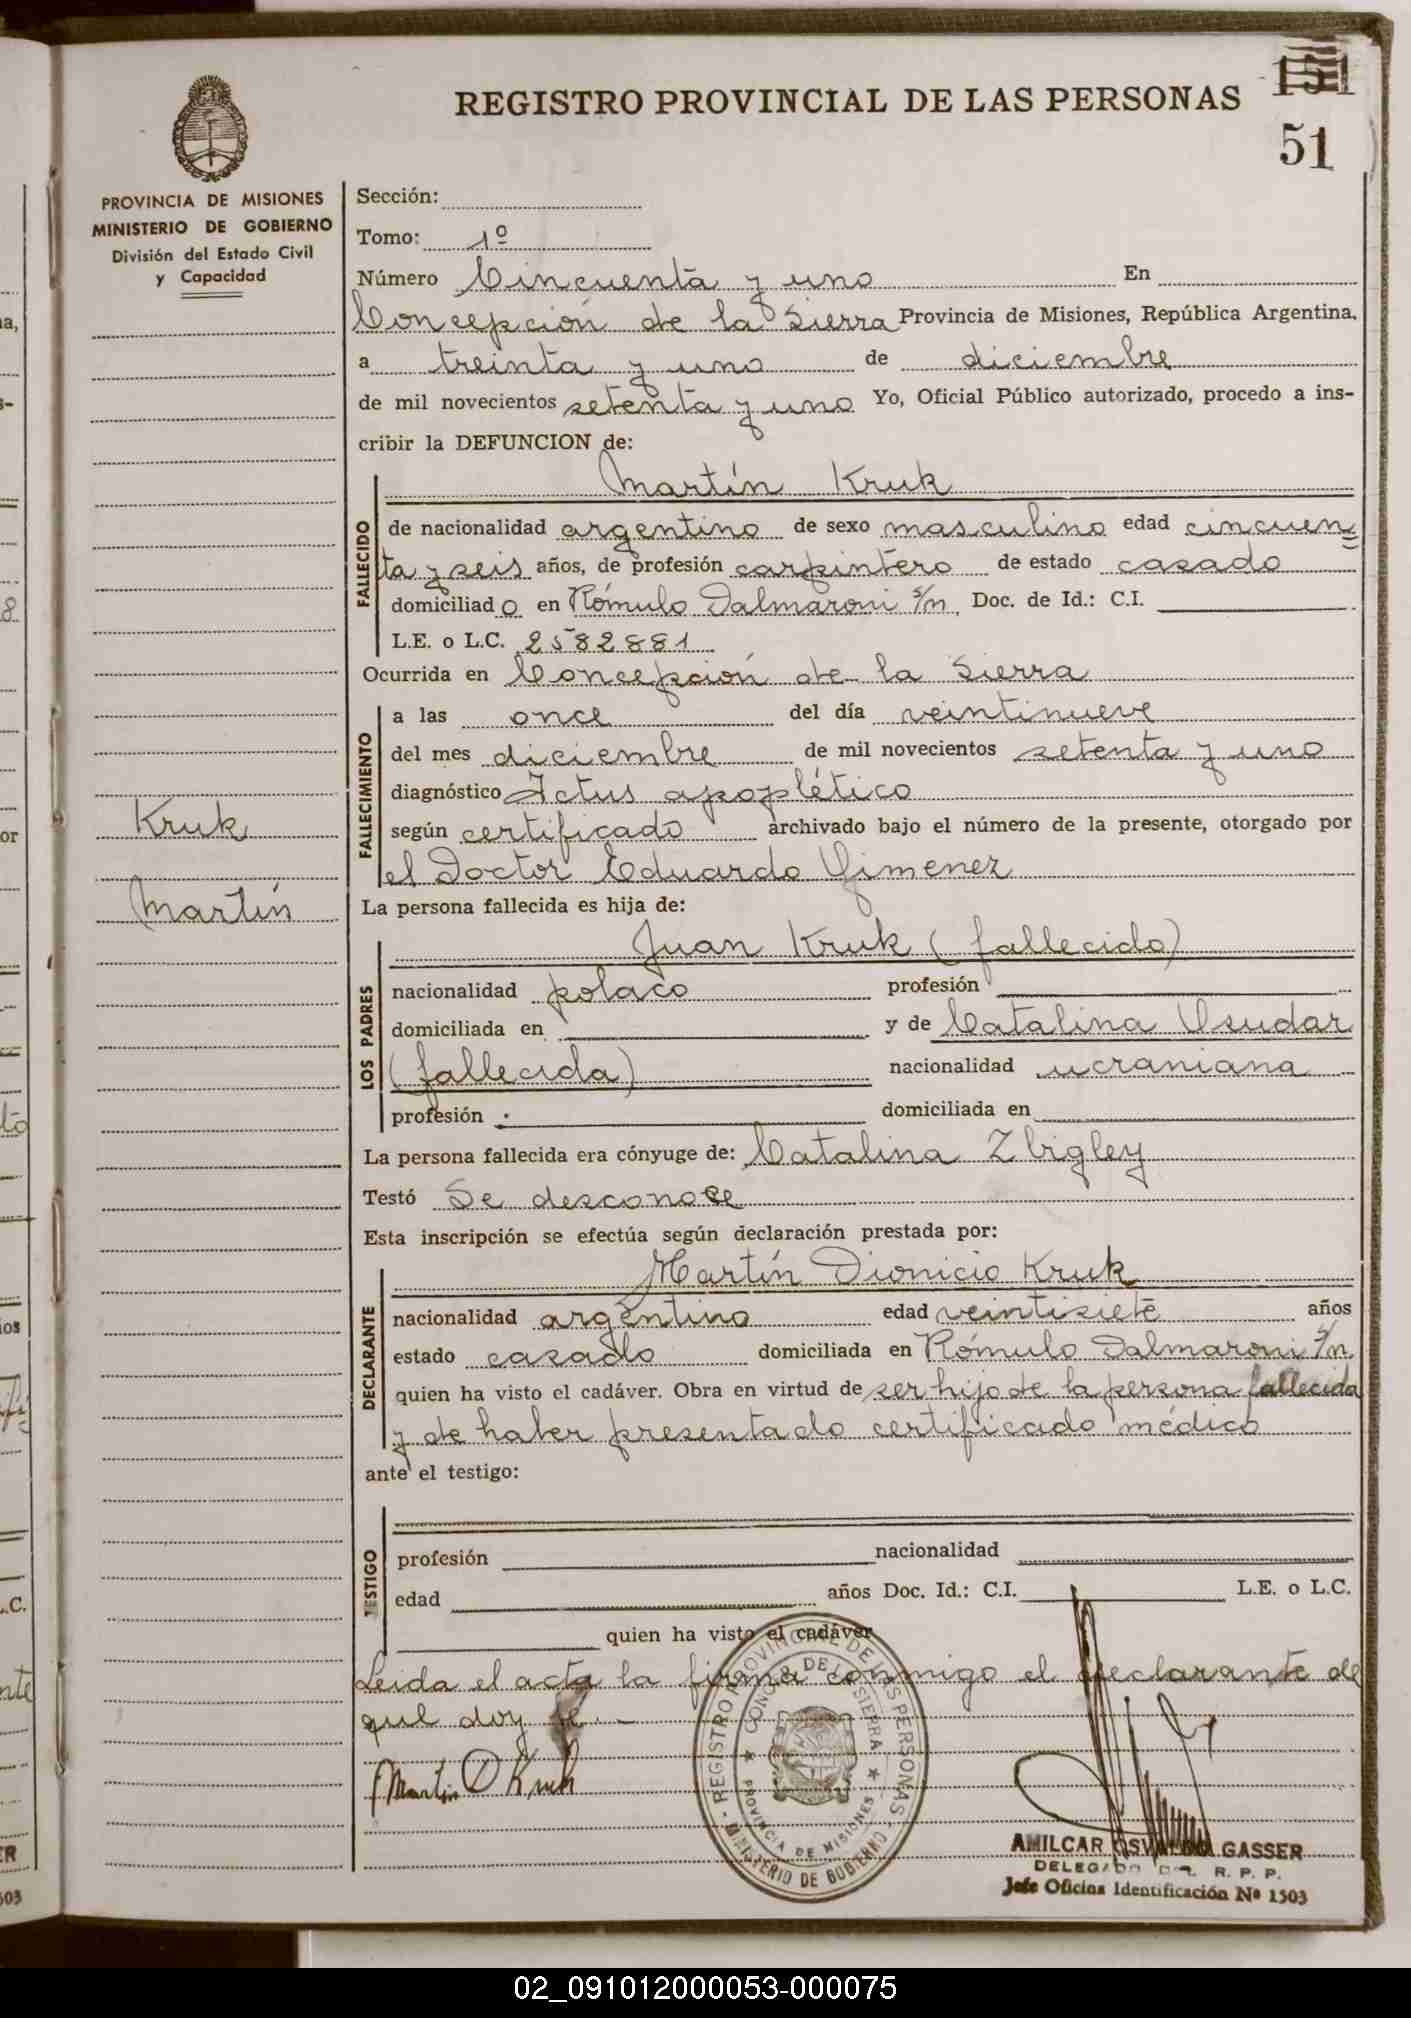 REGISTRO PROVINCIAL DE LAS PERSONAS
151
51
PROVINCIA DE MISIONES
MINISTERIO DE GOBIERNO
División del Estado Civil
y Capacidad
Sección:
Tomo: 1º
Número Cincuenta y uno En
Concepción de la Sierra Provincia de Misiones, República Argentina,
a treinta y uno de diciembre
de mil novecientos setenta y uno Yo, Oficial Público autorizado, procedo a ins-
cribir la DEFUNCION de:
Martín Kruk
FALLECIDO
de nacionalidad argentino de sexo masculino edad cincuen=
ta y seis años, de profesión carpintero de estado casado
domiciliado en Rómulo Dalmaroni s/n, Doc. de Id.: C.I.
L.E. o L.C. 2582881
Ocurrida en Concepción de la Sierra
FALLECIMIENTO
a las once del día veintinueve
del mes diciembre de mil novecientos setenta y uno
diagnóstico Ictus apoplético
según certificado archivado bajo el número de la presente, otorgado por
el Doctor Eduardo Gimenez
Kruk
Martín
La persona fallecida es hija de:
LOS PADRES
Juan Kruk (fallecido)
nacionalidad polaco profesión
domiciliada en y de Catalina Usudar
(fallecida) nacionalidad ucraniana
profesión domiciliada en
La persona fallecida era cónyuge de: Catalina Zbigley
Testó Se desconoce
Esta inscripción se efectúa según declaración prestada por:
DECLARANTE
Martín Dionicio Kruk
nacionalidad argentino edad veintisiete años
estado casado domiciliada en Rómulo Dalmaroni s/n
quien ha visto el cadáver. Obra en virtud de ser hijo de la persona fallecida
y de haber presentado certificado médico
ante el testigo:
TESTIGO
profesión nacionalidad
edad años Doc. Id.: C.I. L.E. o L.C.
quien ha visto el cadáver
Leida el acta la firma conmigo el declarante de
que doy fe.-
Martin D Kruk
REGISTRO PROVINCIAL DE LAS PERSONAS
MINISTERIO DE GOBIERNO
CONC. DE LA SIERRA
PROVINCIA DE MISIONES
AMILCAR OSVALDO GASSER
DELEGADO DEL R. P. P.
Jefe Oficina Identificación Nº 1503
02_091012000053-000075